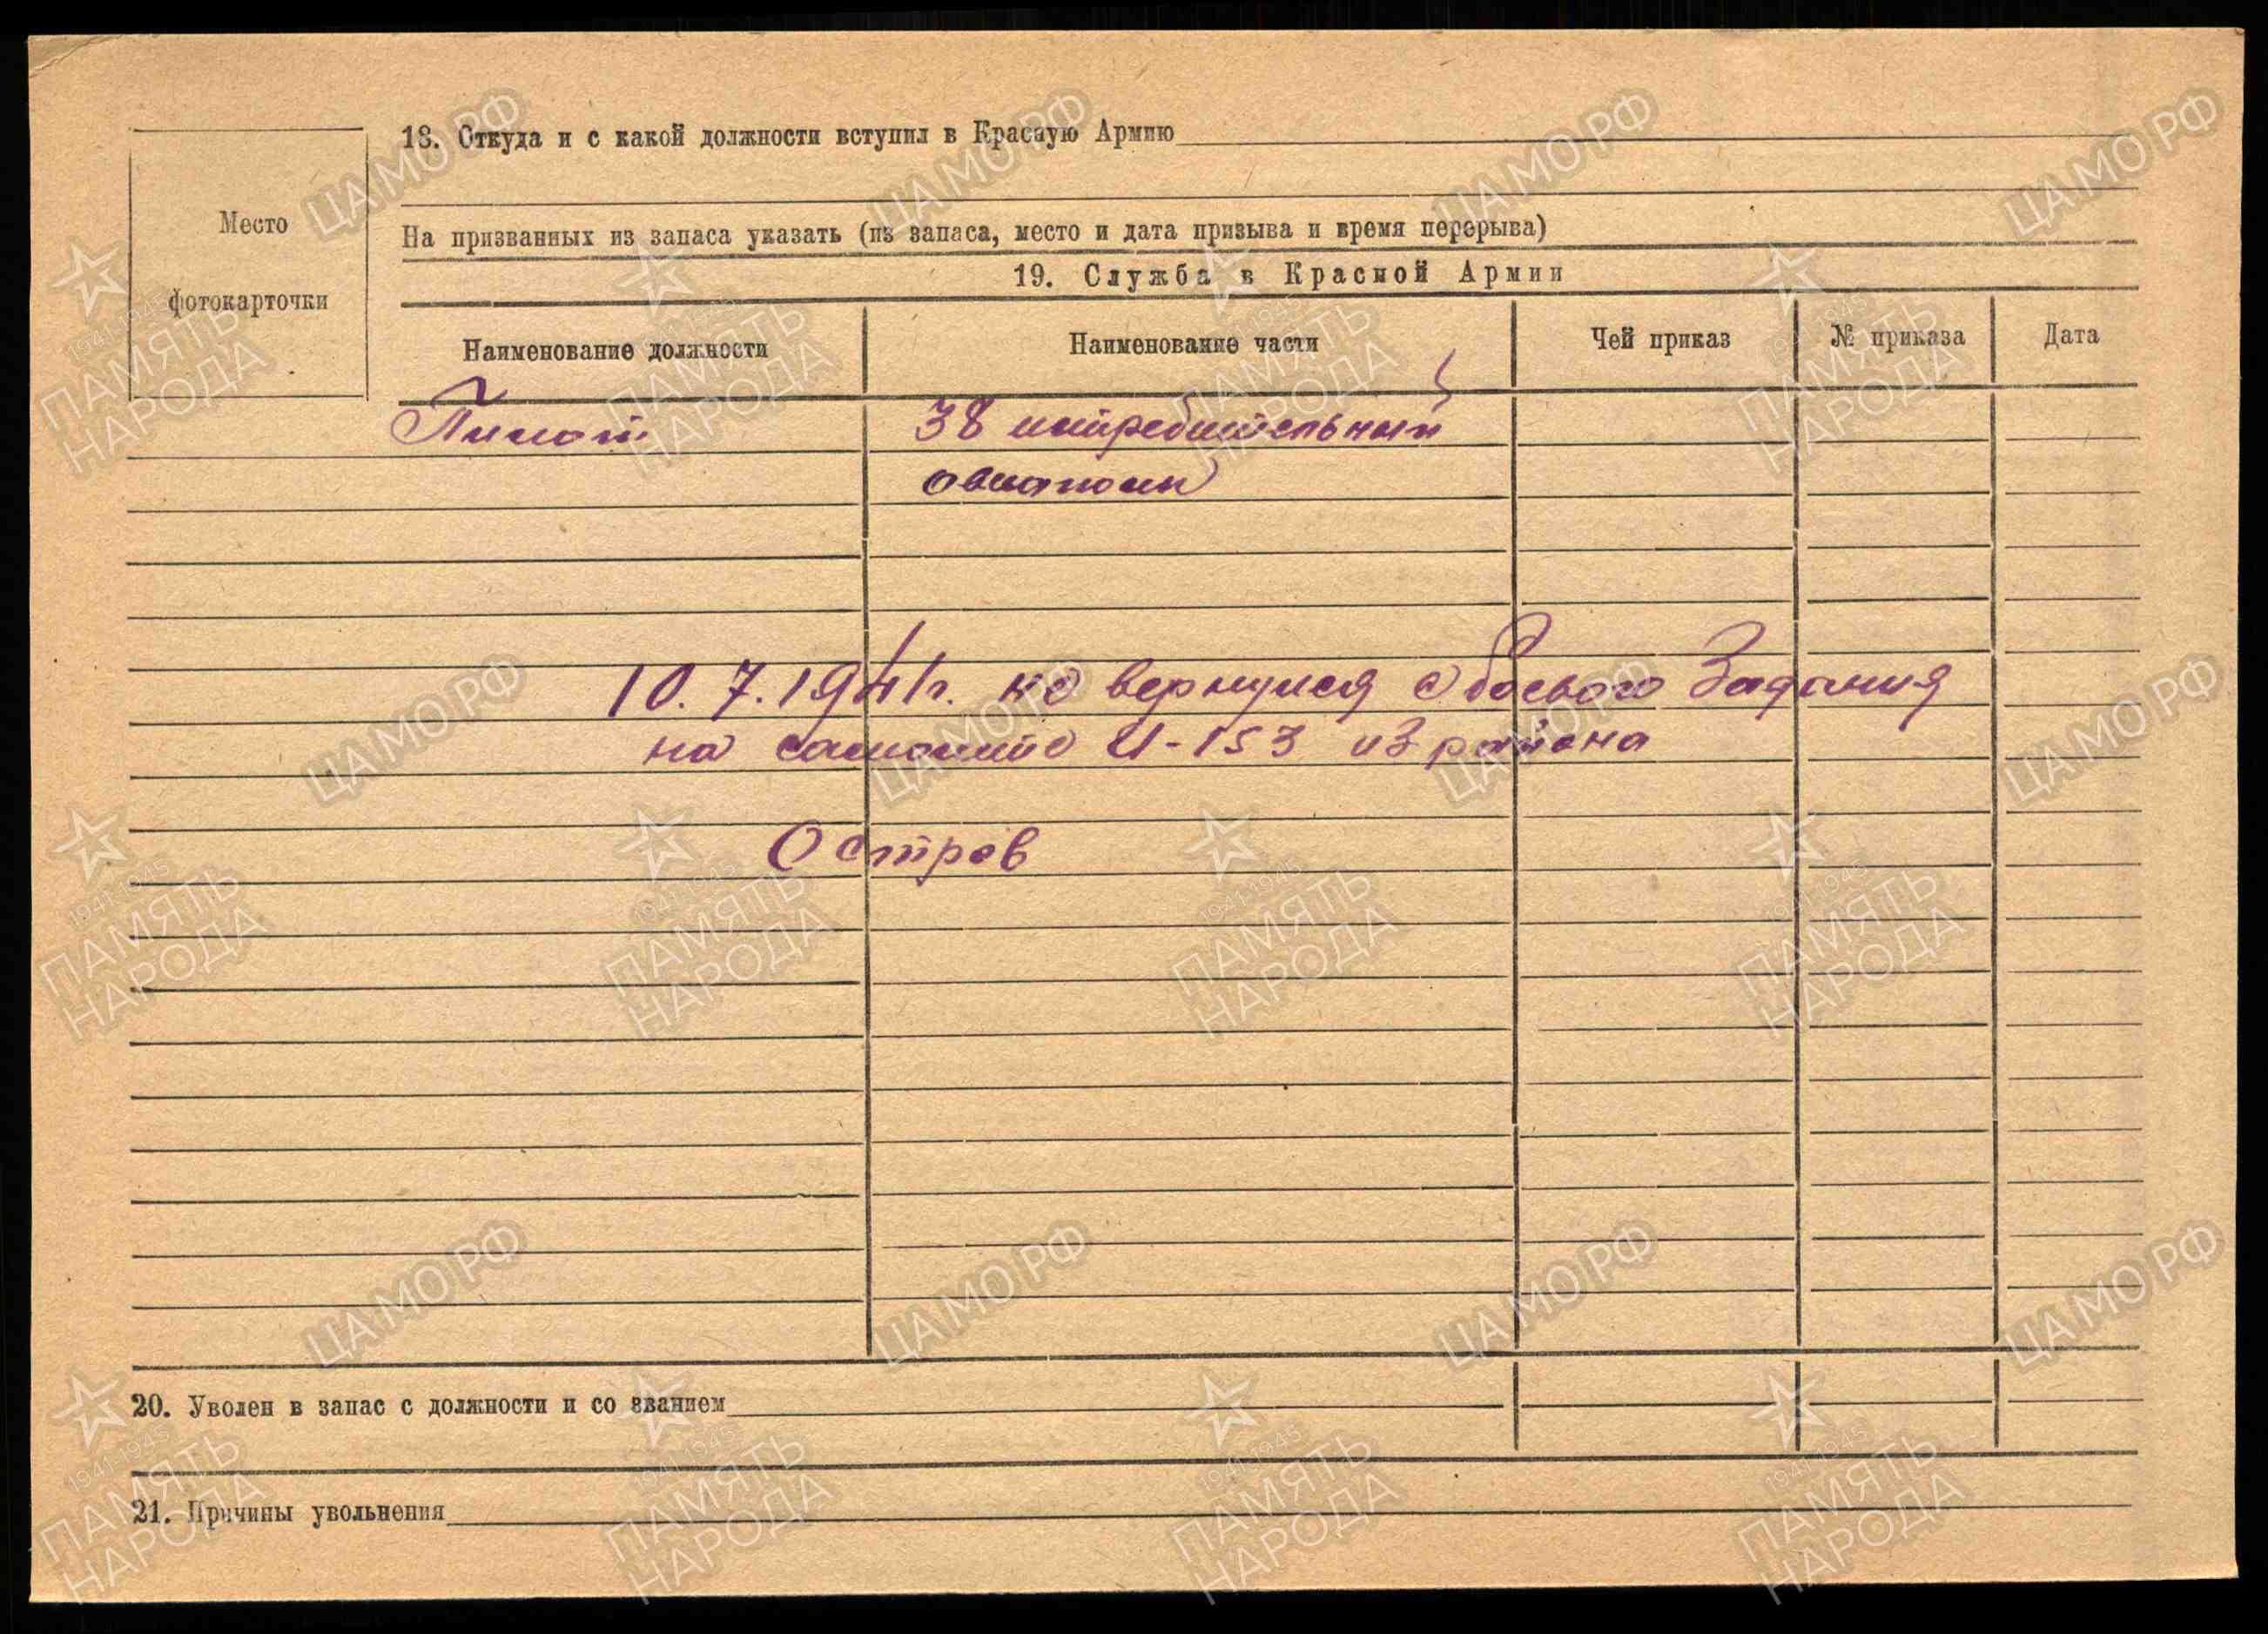 18. Откуда и с какой должности вступил в Красную Армию
Место
фотокарточки
На призванных из запаса указать (из запаса, место и дата призыва и время перерыва)
19. Служба в Красной Армии
Наименование должности Наименование части Чей приказ № приказа Дата
Пилот 38 истребительный
авиаполк
10.7.1941г. не вернулся с боевого Задания
на самолите И-153 из района
Остров
20. Уволен в запас с должности и со званием
21. Причины увольнения
ЦАМО.РФ
1941-1945
ПАМЯТЬ
НАРОДА